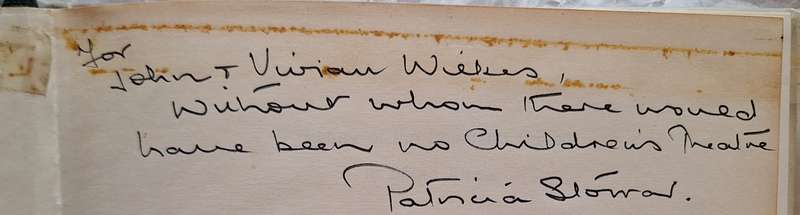 For
John + Vivian Wilkes,
Without whom there would
have been no Children's Theatre
Patricia Stówar.